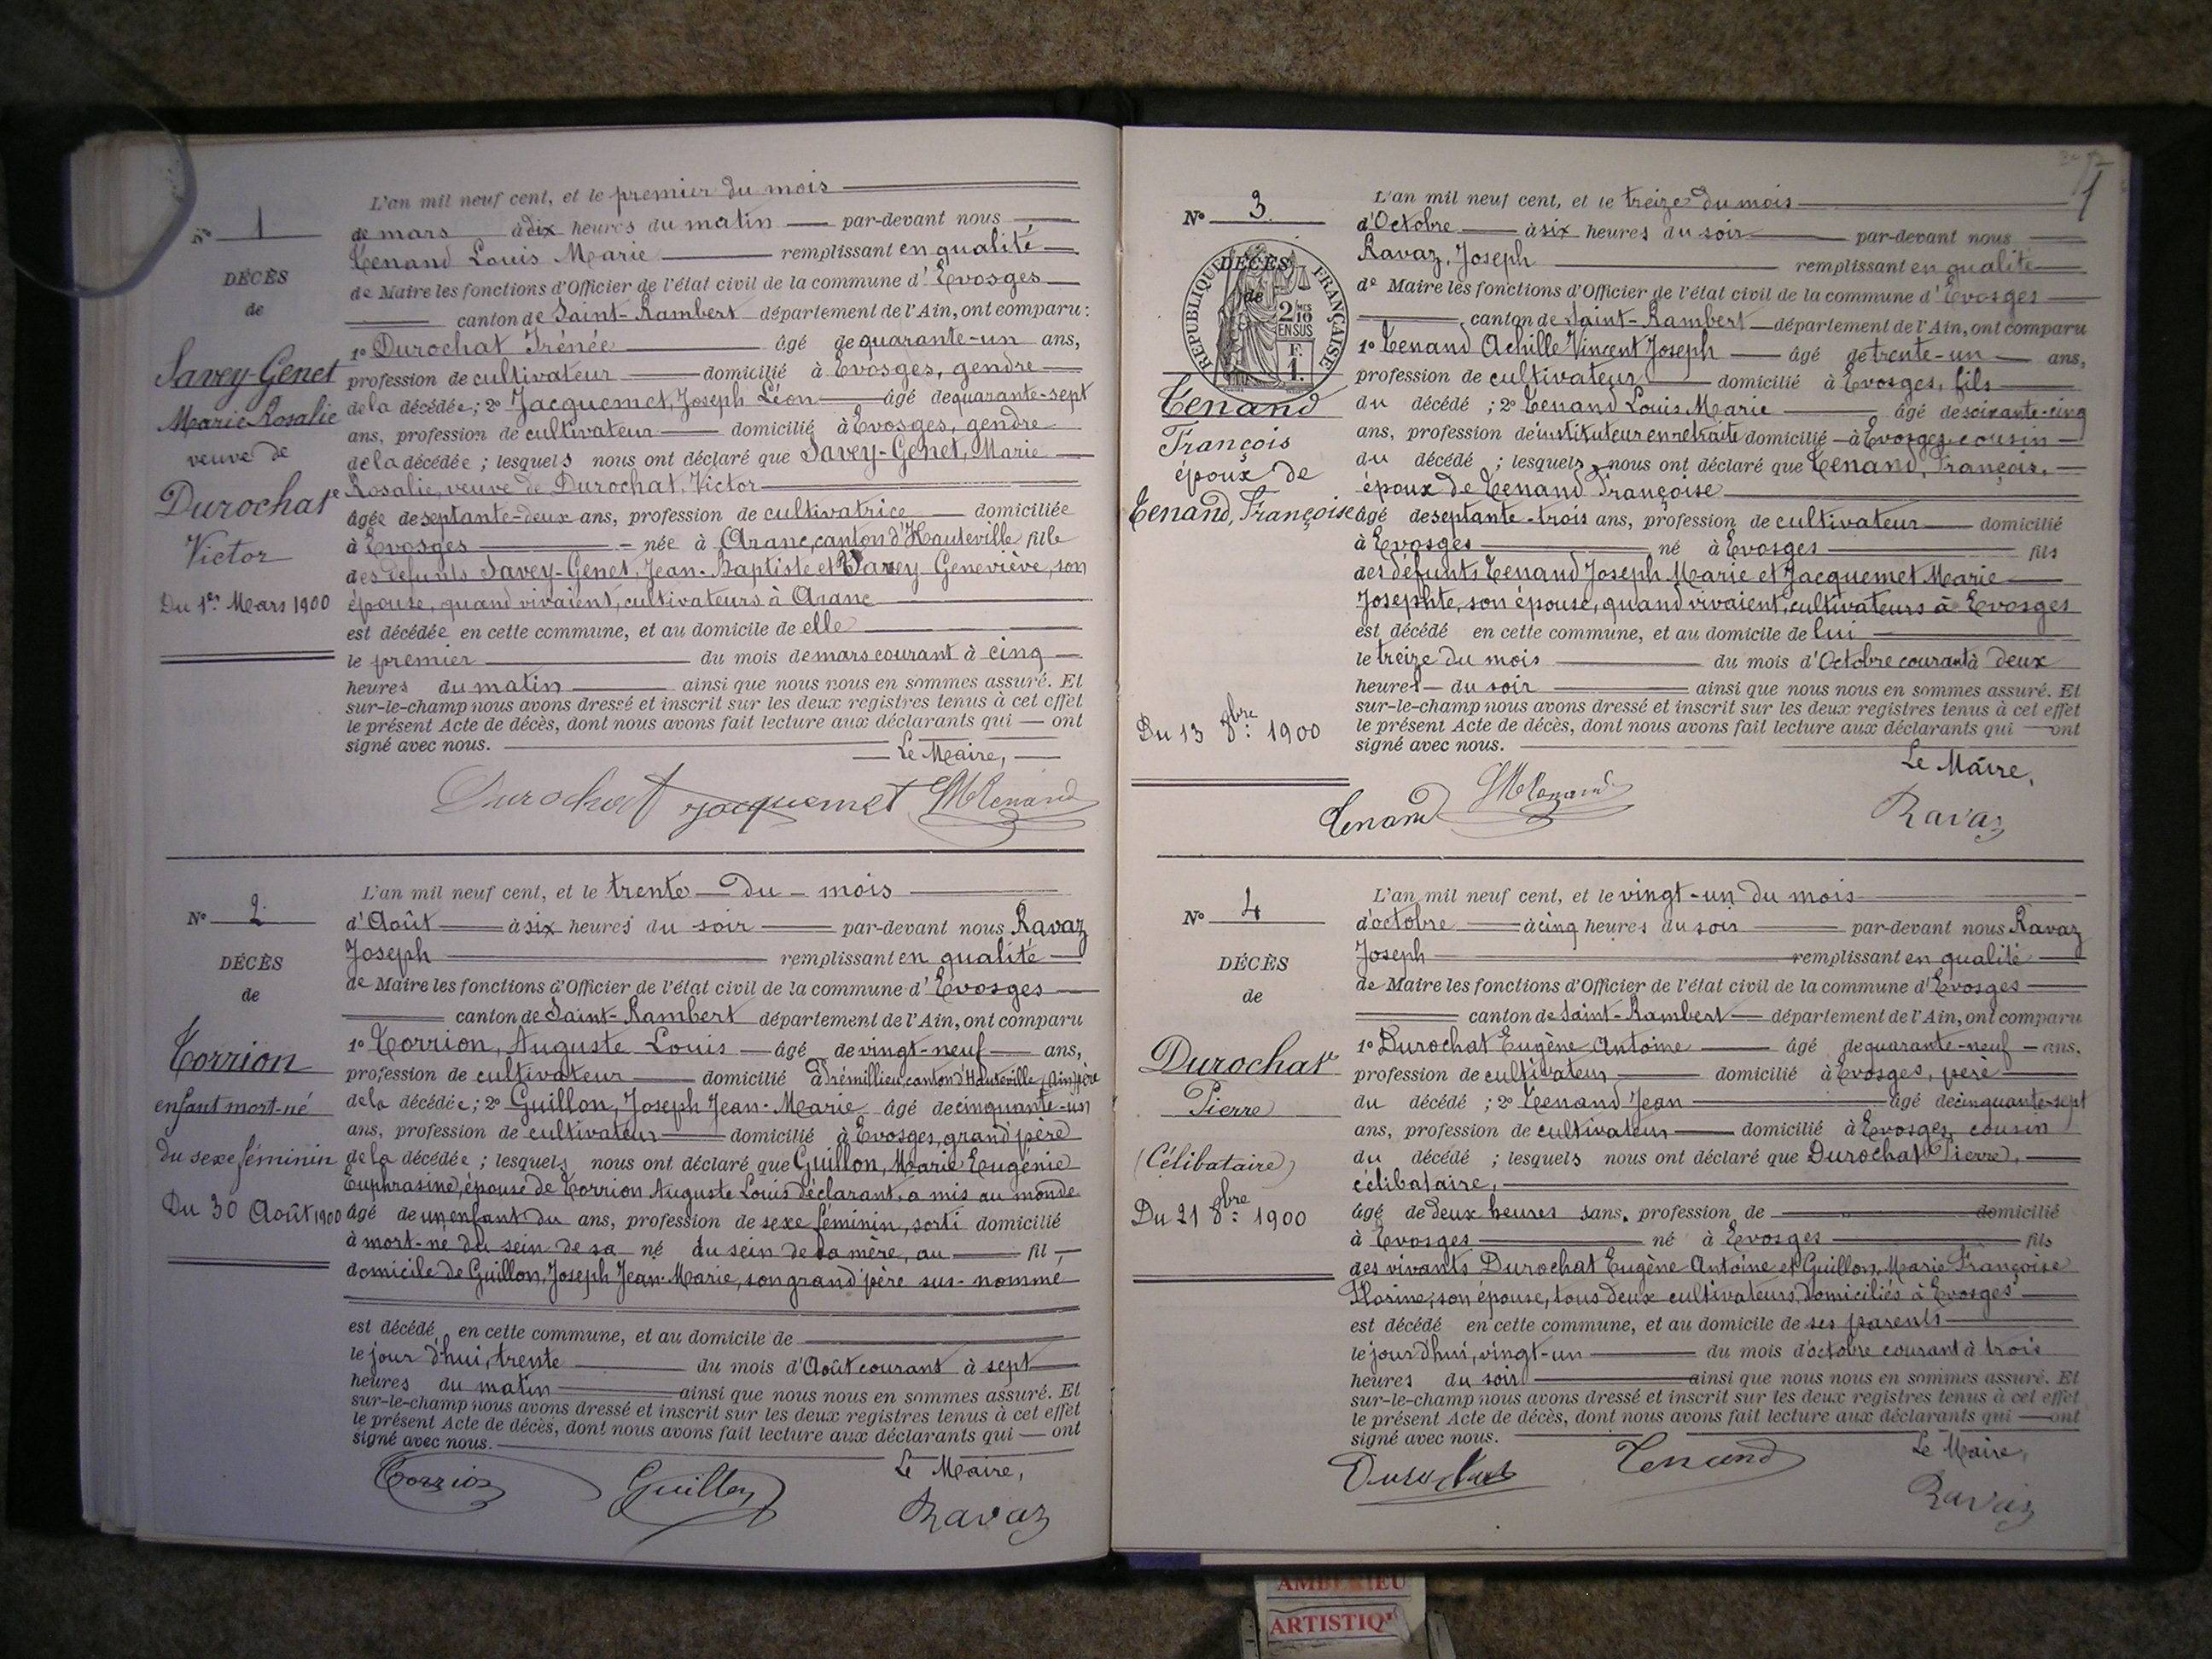 N° 1
DÉCÈS
de
Savey-Genet
Marie Rosalie
veuve de
Durochat
Victor
Du 1er Mars 1900
L'an mil neuf cent, et le premier du mois
de mars à dix heures du matin par-devant nous
Tenand Louis Marie remplissant en qualité
de Maire les fonctions d'Officier de l'état civil de la commune d'Évosges
canton de Saint-Rambert département de l'Ain, ont comparu:
1° Durochat Irénée âgé de quarante-un ans,
profession de cultivateur domicilié à Evosges, gendre
de la décédée; 2° Jacquemet, Joseph Léon âgé de quarante-sept
ans, profession de cultivateur domicilié à Evosges, gendre
de la décédée; lesquels nous ont déclaré que Savey-Genet, Marie
Rosalie, veuve de Durochat, Victor
âgée de septante-deux ans, profession de cultivatrice domiciliée
à Evosges née à Aranc, canton d'Hauteville fille
des défunts Savey-Genet, Jean-Baptiste et Geneviève, son
épouse, quand vivaient, cultivateurs à Aranc
est décédée en cette commune, et au domicile de elle
le premier du mois de mars courant à cinq
heures du matin ainsi que nous nous en sommes assuré. Et
sur-le-champ nous avons dressé et inscrit sur les deux registres tenus à cet effet
le présent Acte de décès, dont nous avons fait lecture aux déclarants qui ont
signé avec nous.
Le Maire,
Durochat Jacquemet LMTenand
N° 2.
DÉCÈS
de
Torrion
enfant mort-né
du sexe féminin
Du 30 Août 1900
L'an mil neuf cent, et le trente du mois
d'Août à six heures du soir par-devant nous Ravaz
Joseph remplissant en qualité
de Maire les fonctions d'Officier de l'état civil de la commune d'Evosges
canton de Saint-Rambert département de l'Ain, ont comparu
1° Torrion, Auguste Louis âgé de vingt-neuf ans,
profession de cultivateur domicilié à Prémillieu, canton d'Hauteville (Ain) père
de la décédée; 2° Guillon, Joseph Jean-Marie âgé de cinquante-un
ans, profession de cultivateur domicilié à Evosges, grand'père
de la décédée; lesquels nous ont déclaré que Guillon, Marie Eugénie
Euphrasine, épouse de Torrion Auguste Louis déclarant, a mis au monde
âgé de un enfant du ans, profession de sexe féminin, sorti domicilié
à mort-né du sein de sa né du sein de sa mère, au fil
domicile de Guillon, Joseph Jean-Marie, son grand'père sus-nommé
est décédé en cette commune, et au domicile de
le jour d'hui, trente du mois d'Août courant à sept
heures du matin ainsi que nous nous en sommes assuré. Et
sur-le-champ nous avons dressé et inscrit sur les deux registres tenus à cet effet
le présent Acte de décès, dont nous avons fait lecture aux déclarants qui ont
signé avec nous.
Le Maire,
Torrion Guillon Ravaz
1
N° 3.
DÉCÈS
de
RÉPUBLIQUE FRANÇAISE
2/10
EN SUS
F.
1.
Tenand
François
époux de
Tenand, Françoise
Du 13 8bre 1900
L'an mil neuf cent, et le treize du mois
d'Octobre à six heures du soir par-devant nous
Ravaz, Joseph remplissant en qualité
de Maire les fonctions d'Officier de l'état civil de la commune d'Evosges
canton de Saint-Rambert département de l'Ain, ont comparu
1° Tenand Achille Vincent Joseph âgé de trente-un ans,
profession de cultivateur domicilié à Evosges, fils
du décédé; 2° Tenand Louis Marie âgé de soixante-cinq
ans, profession de instituteur en retraite domicilié à Evosges cousin
du décédé; lesquels nous ont déclaré que Tenand, François,
époux de Tenand Françoise
âgé de septante-trois ans, profession de cultivateur domicilié
à Evosges né à Evosges fils
des défunts Tenand Joseph Marie et Jacquemet Marie
Josephte, son épouse, quand vivaient, cultivateurs à Evosges
est décédé en cette commune, et au domicile de lui
le treize du mois du mois d'Octobre courant à deux
heures du soir ainsi que nous nous en sommes assuré. Et
sur-le-champ nous avons dressé et inscrit sur les deux registres tenus à cet effet
le présent Acte de décès, dont nous avons fait lecture aux déclarants qui ont
signé avec nous.
Le Maire,
Tenand LMTenand Ravaz
N° 4
DÉCÈS
de
Durochat
Pierre
(Célibataire)
Du 21 8bre 1900
L'an mil neuf cent, et le vingt-un du mois
d'octobre à cinq heures du soir par-devant nous Ravaz
Joseph remplissant en qualité
de Maire les fonctions d'Officier de l'état civil de la commune d'Evosges
canton de Saint-Rambert département de l'Ain, ont comparu
1° Durochat Eugène Antoine âgé de quarante-neuf ans,
profession de cultivateur domicilié à Evosges, père
du décédé; 2° Tenand Jean âgé de cinquante-sept
ans, profession de cultivateur domicilié à Evosges cousin
du décédé; lesquels nous ont déclaré que Durochat Pierre,
célibataire,
âgé de deux heures sans, profession de domicilié
à Evosges né à Evosges fils
des vivants Durochat Eugène Antoine et Guillon, Marie Françoise
Florine, son épouse, tous deux cultivateurs domiciliés à Evosges
est décédé en cette commune, et au domicile de ses parents
le jour d'hui, vingt-un du mois d'octobre courant à trois
heures du soir ainsi que nous nous en sommes assuré. Et
sur-le-champ nous avons dressé et inscrit sur les deux registres tenus à cet effet
le présent Acte de décès, dont nous avons fait lecture aux déclarants qui ont
signé avec nous.
Le Maire,
Durochat Tenand Ravaz
ARTISTIQ